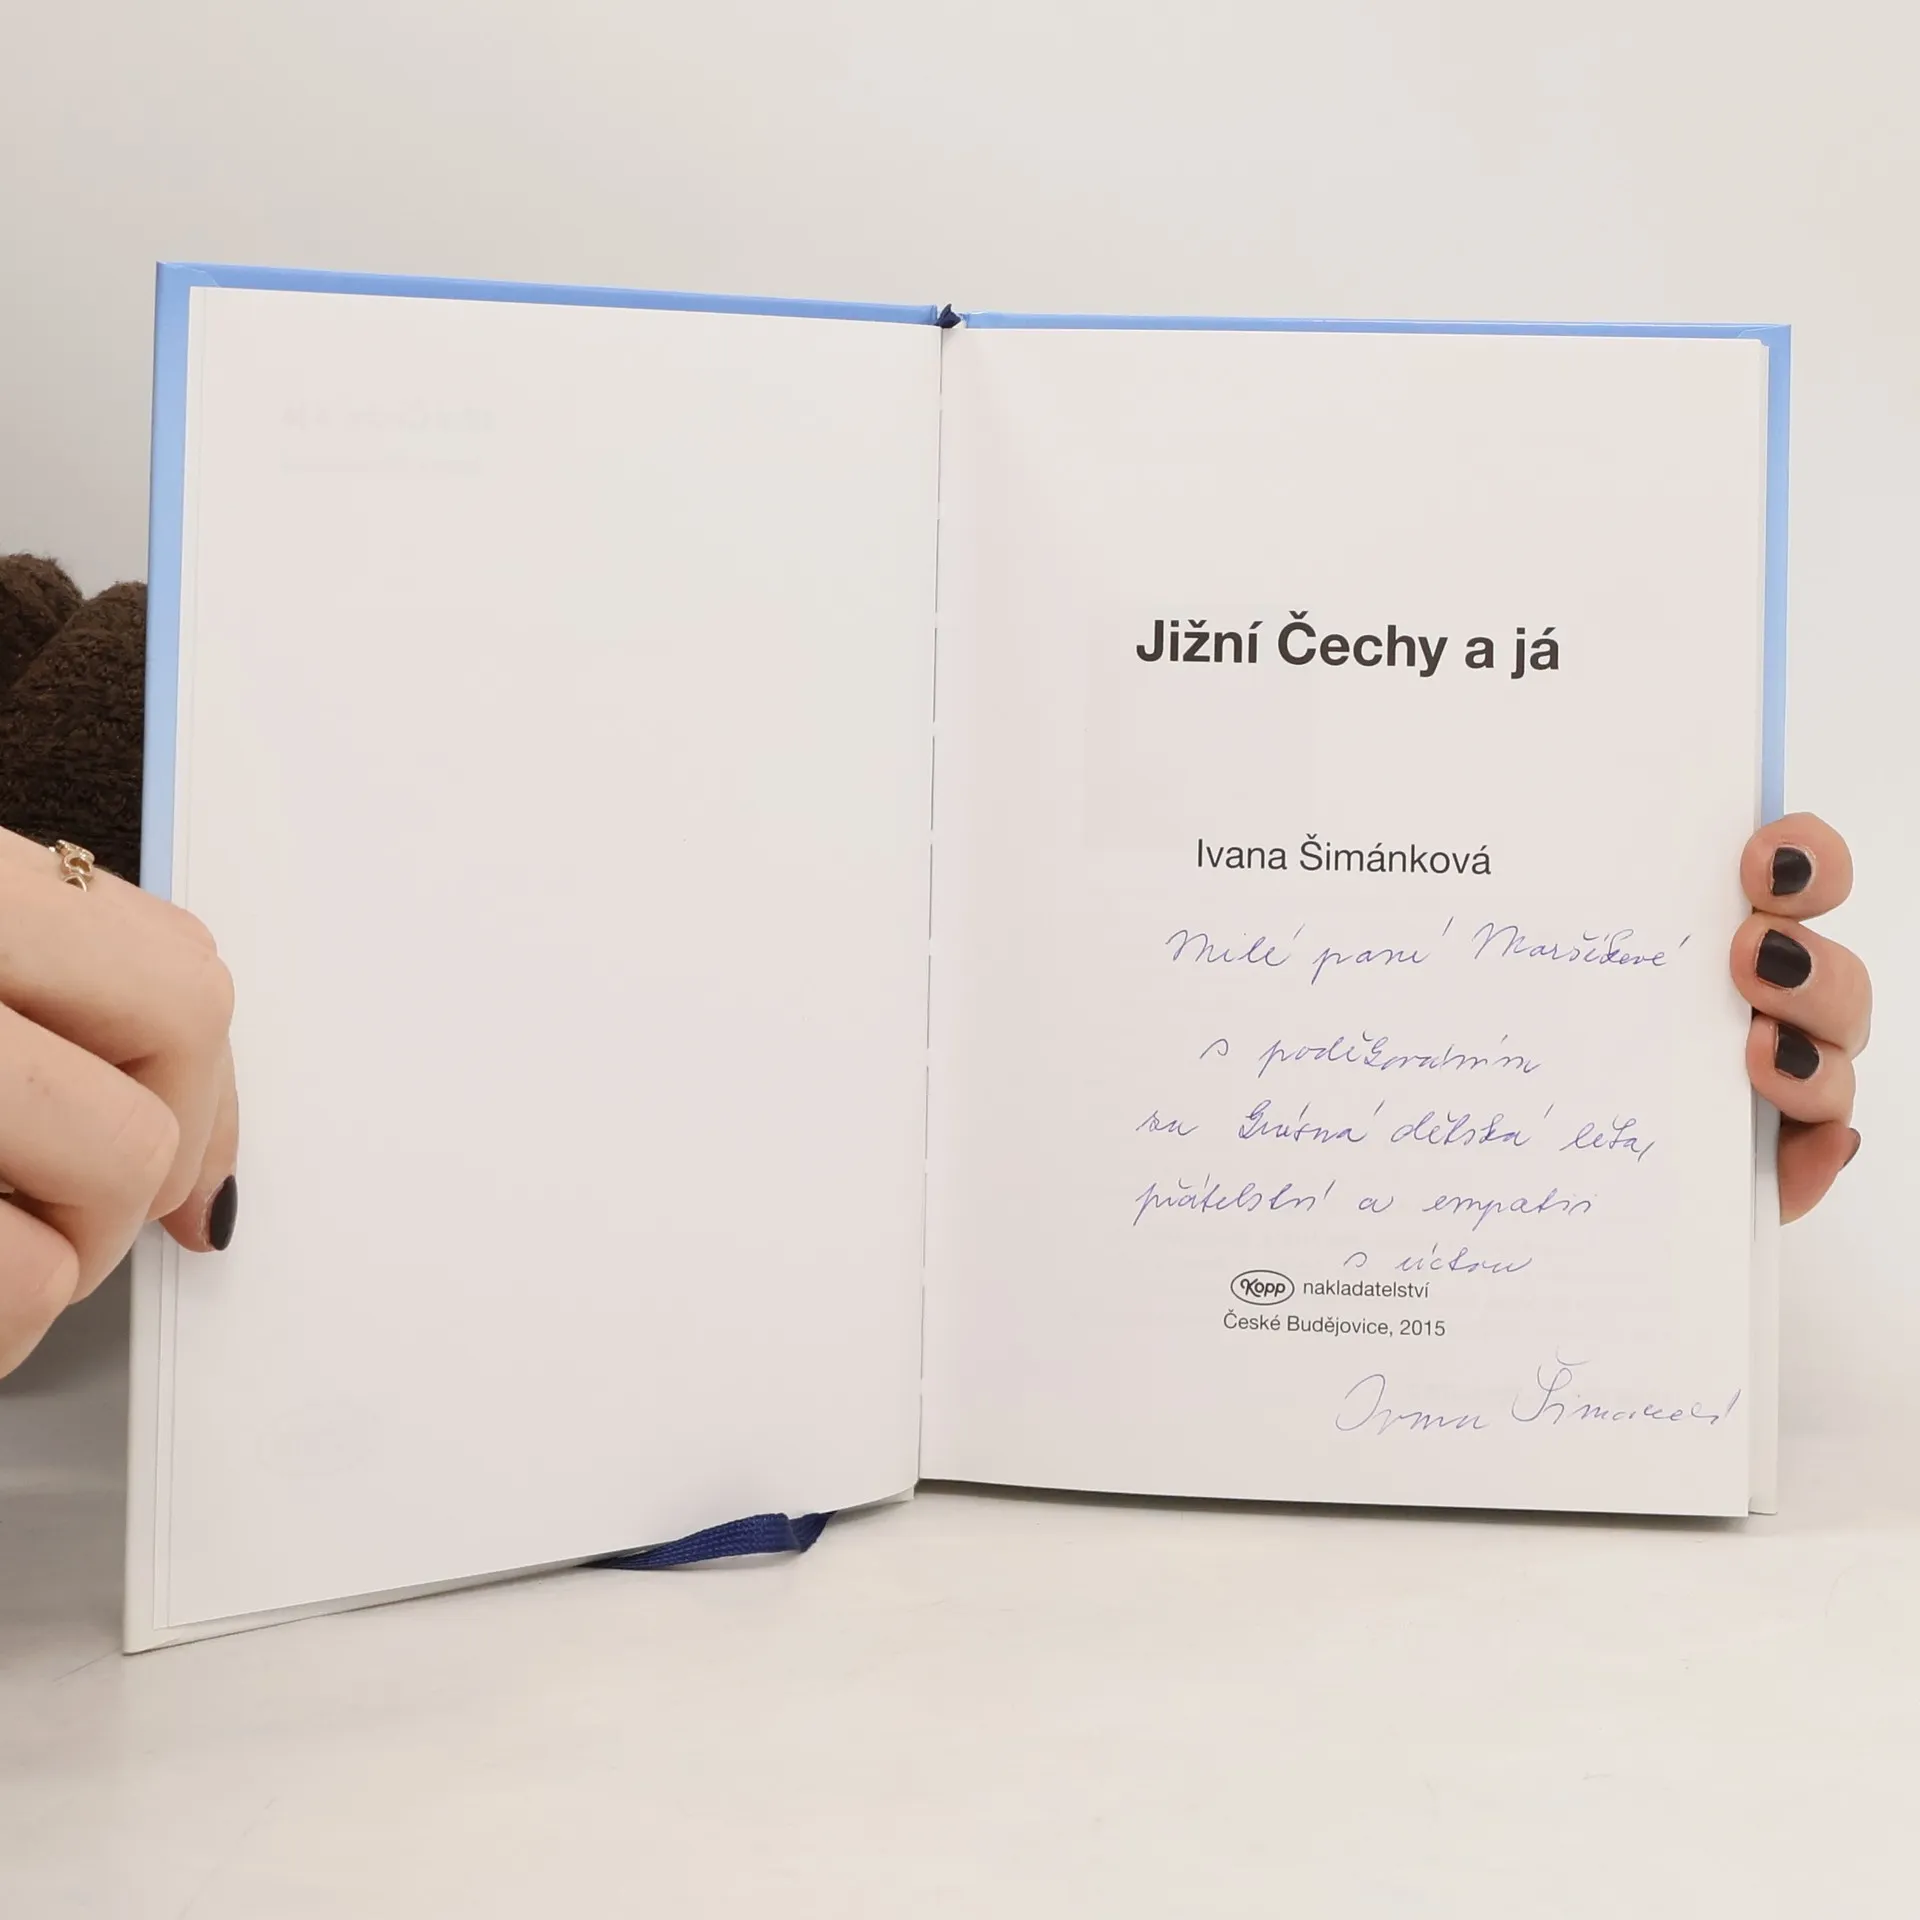 Jižní Čechy a já
Ivana Šimánková
Milé paní Maršíkové
s poděkováním
za krásná dětská léta,
přátelství a empatii
s úctou
Kopp nakladatelství
České Budějovice, 2015
Ivana Šimánková